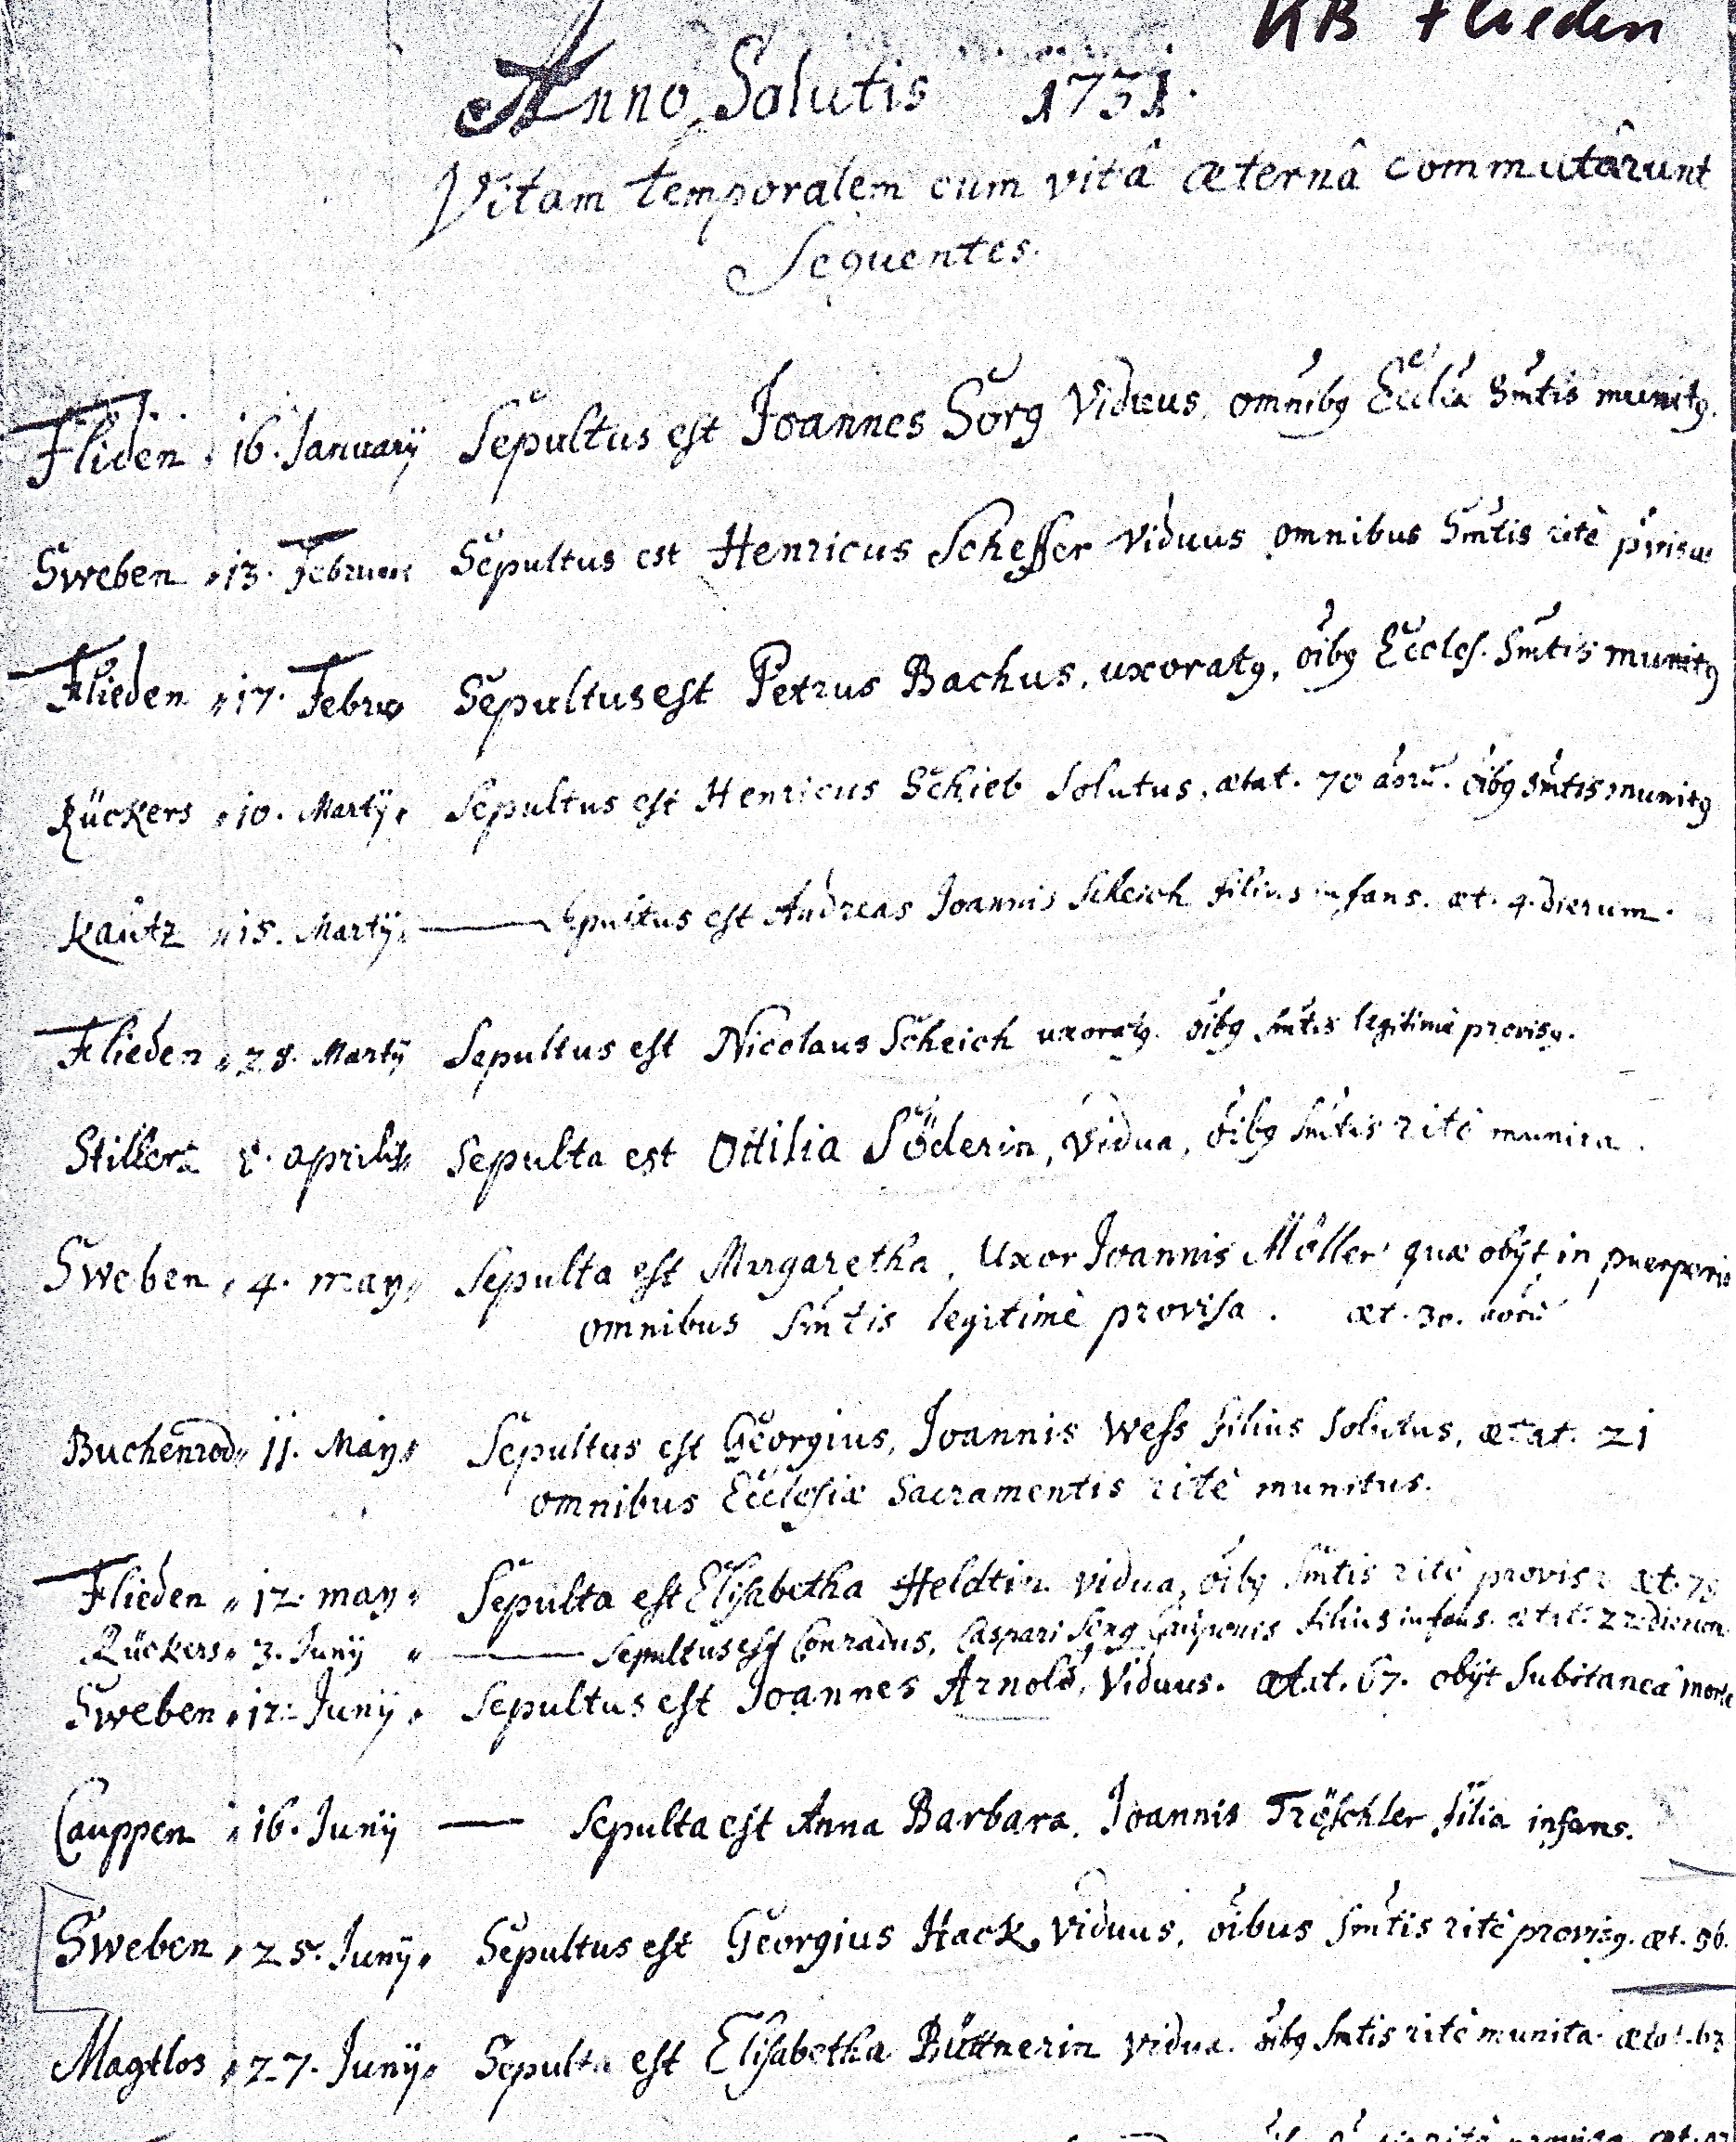 KB Flieden
Anno Salutis 1731.
Vitam temporalem cum vitâ æternâ commutârunt
Sequentes.
Fliden 16. Januarÿ Sepultus est Joannes Sorg Viduus, omnibg Eccliæ Smtis munitg.
Sweben 13. Sepultus est Henricus Scheffer Viduus omnibus Smtis ritè
Flieden 17. Febru Sepultus est Petrus Bachus, uxoratg, oibg Eccles. Smtis munitg
Rückers 10. Martÿ Sepultus est Henricus Schieb Solutus, ætat. 70 oibg Smtis munitg
Kautz 15. Martÿ — Sepultus est Andreas Joannis Scheich filius infans. æt. 4. dierum.
Flieden 28. Martÿ Sepultus est Nicolaus Scheich uxoratg. oibg Smtis legitimè provisg.
8. aprilis Sepulta est Ottilia Söderin, Vidua, oibg Smtis ritè munita.
Sweben 4. may Sepulta est Margaretha, Uxor Joannis Möller quæ obÿt in
omnibus Smtis legitimè provisa. æt. 30.
Buchenrod 11. May Sepultus est Georgius, Joannis Wess filius Solutus, ætat. 21
omnibus Ecclesiæ Sacramentis ritè munitus.
Flieden 12. may Sepulta est Elisabetha Heldtin vidua, oibg Smtis ritè provisa æt.
Rückers 3. Junÿ — Sepultus est Conradus, Caspari filius infans. ætat. 22 dierum
Sweben 12. Junÿ Sepultus est Joannes Arnold, Viduus. ætat. 67. obÿt Subitaneâ morte
Cauppen 16. Junÿ — Sepulta est Anna Barbara, Joannis Tröschler filia infans.
Sweben 25. Junÿ Sepultus est Georgius Hack Viduus, oibus Smtis ritè provisg. æt. 56.
Magtlos 27. Junÿ Sepulta est Elisabetha Büttnerin Vidua. oibg Smtis ritè munita. ætat.
ritè provisa æt.